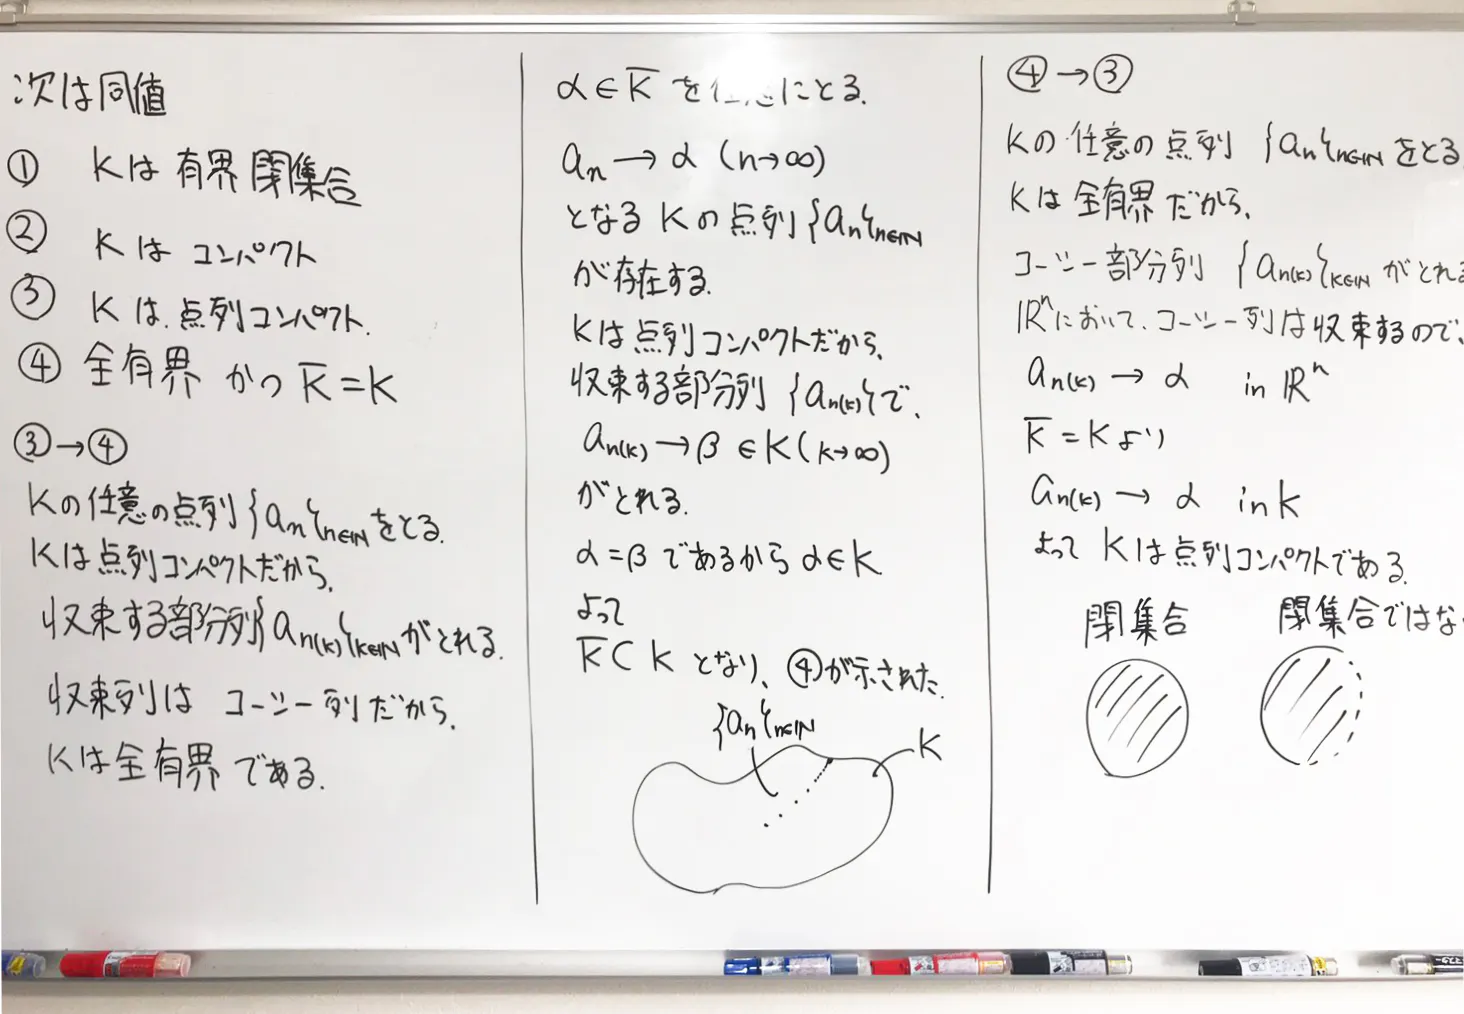 次は同値
① Kは有界閉集合
② Kはコンパクト
③ Kは点列コンパクト.
④ 全有界かつ K̅=K
③→④
Kの任意の点列{aₙ}n∈ℕをとる.
Kは点列コンパクトだから,
収束する部分列{aₙ₍ₖ₎}k∈ℕがとれる.
収束列はコーシー列だから,
Kは全有界である.
α∈K̅ を にとる.
aₙ→α (n→∞)
となるKの点列{aₙ}n∈ℕ
が存在する.
Kは点列コンパクトだから,
収束する部分列{aₙ₍ₖ₎}で,
aₙ₍ₖ₎→β∈K(k→∞)
がとれる.
α=βであるからα∈K
よって
K̅⊂Kとなり、④が示された.
{aₙ}n∈ℕ
K
④→③
Kの任意の点列 {aₙ}n∈ℕをとる
Kは全有界だから,
コーシー部分列 {aₙ₍ₖ₎}k∈ℕがとれる
ℝⁿにおいて、コーシー列は収束するので、
aₙ₍ₖ₎→α in ℝⁿ
K̅=Kより
aₙ₍ₖ₎→α in K
よってKは点列コンパクトである.
閉集合
閉集合ではな